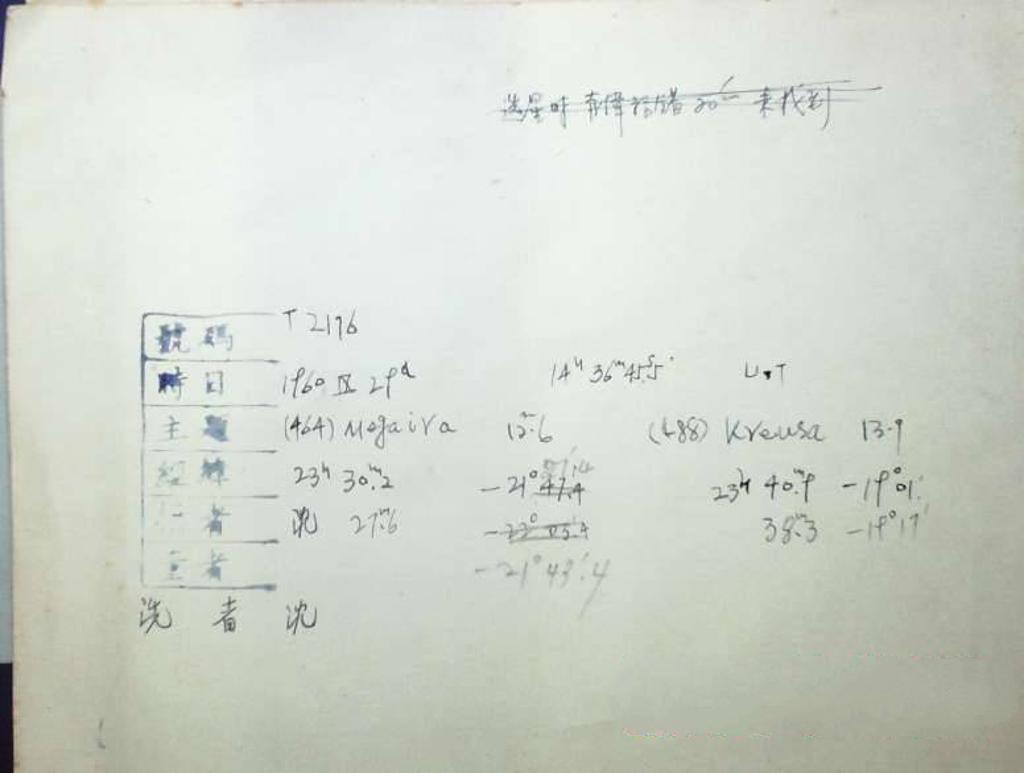 選星時 赤緯 錯 30′ 未找到
號碼 T 2196
時日 1960 IX 29ᵈ 14ʰ 36ᵐ 45ˢ.5 U.T
主題 (464) Megaira 12ᵐ.6 (488) Kreusa 13.9
經緯 23ʰ 30ᵐ.2 -21° 47.4 23ʰ 40ᵐ.9 -19°01′.
者 沈 27ᵐ.6 -22° 05.4 38ᵐ.3 -19°17′
者 -21° 43′.4
洗者 沈